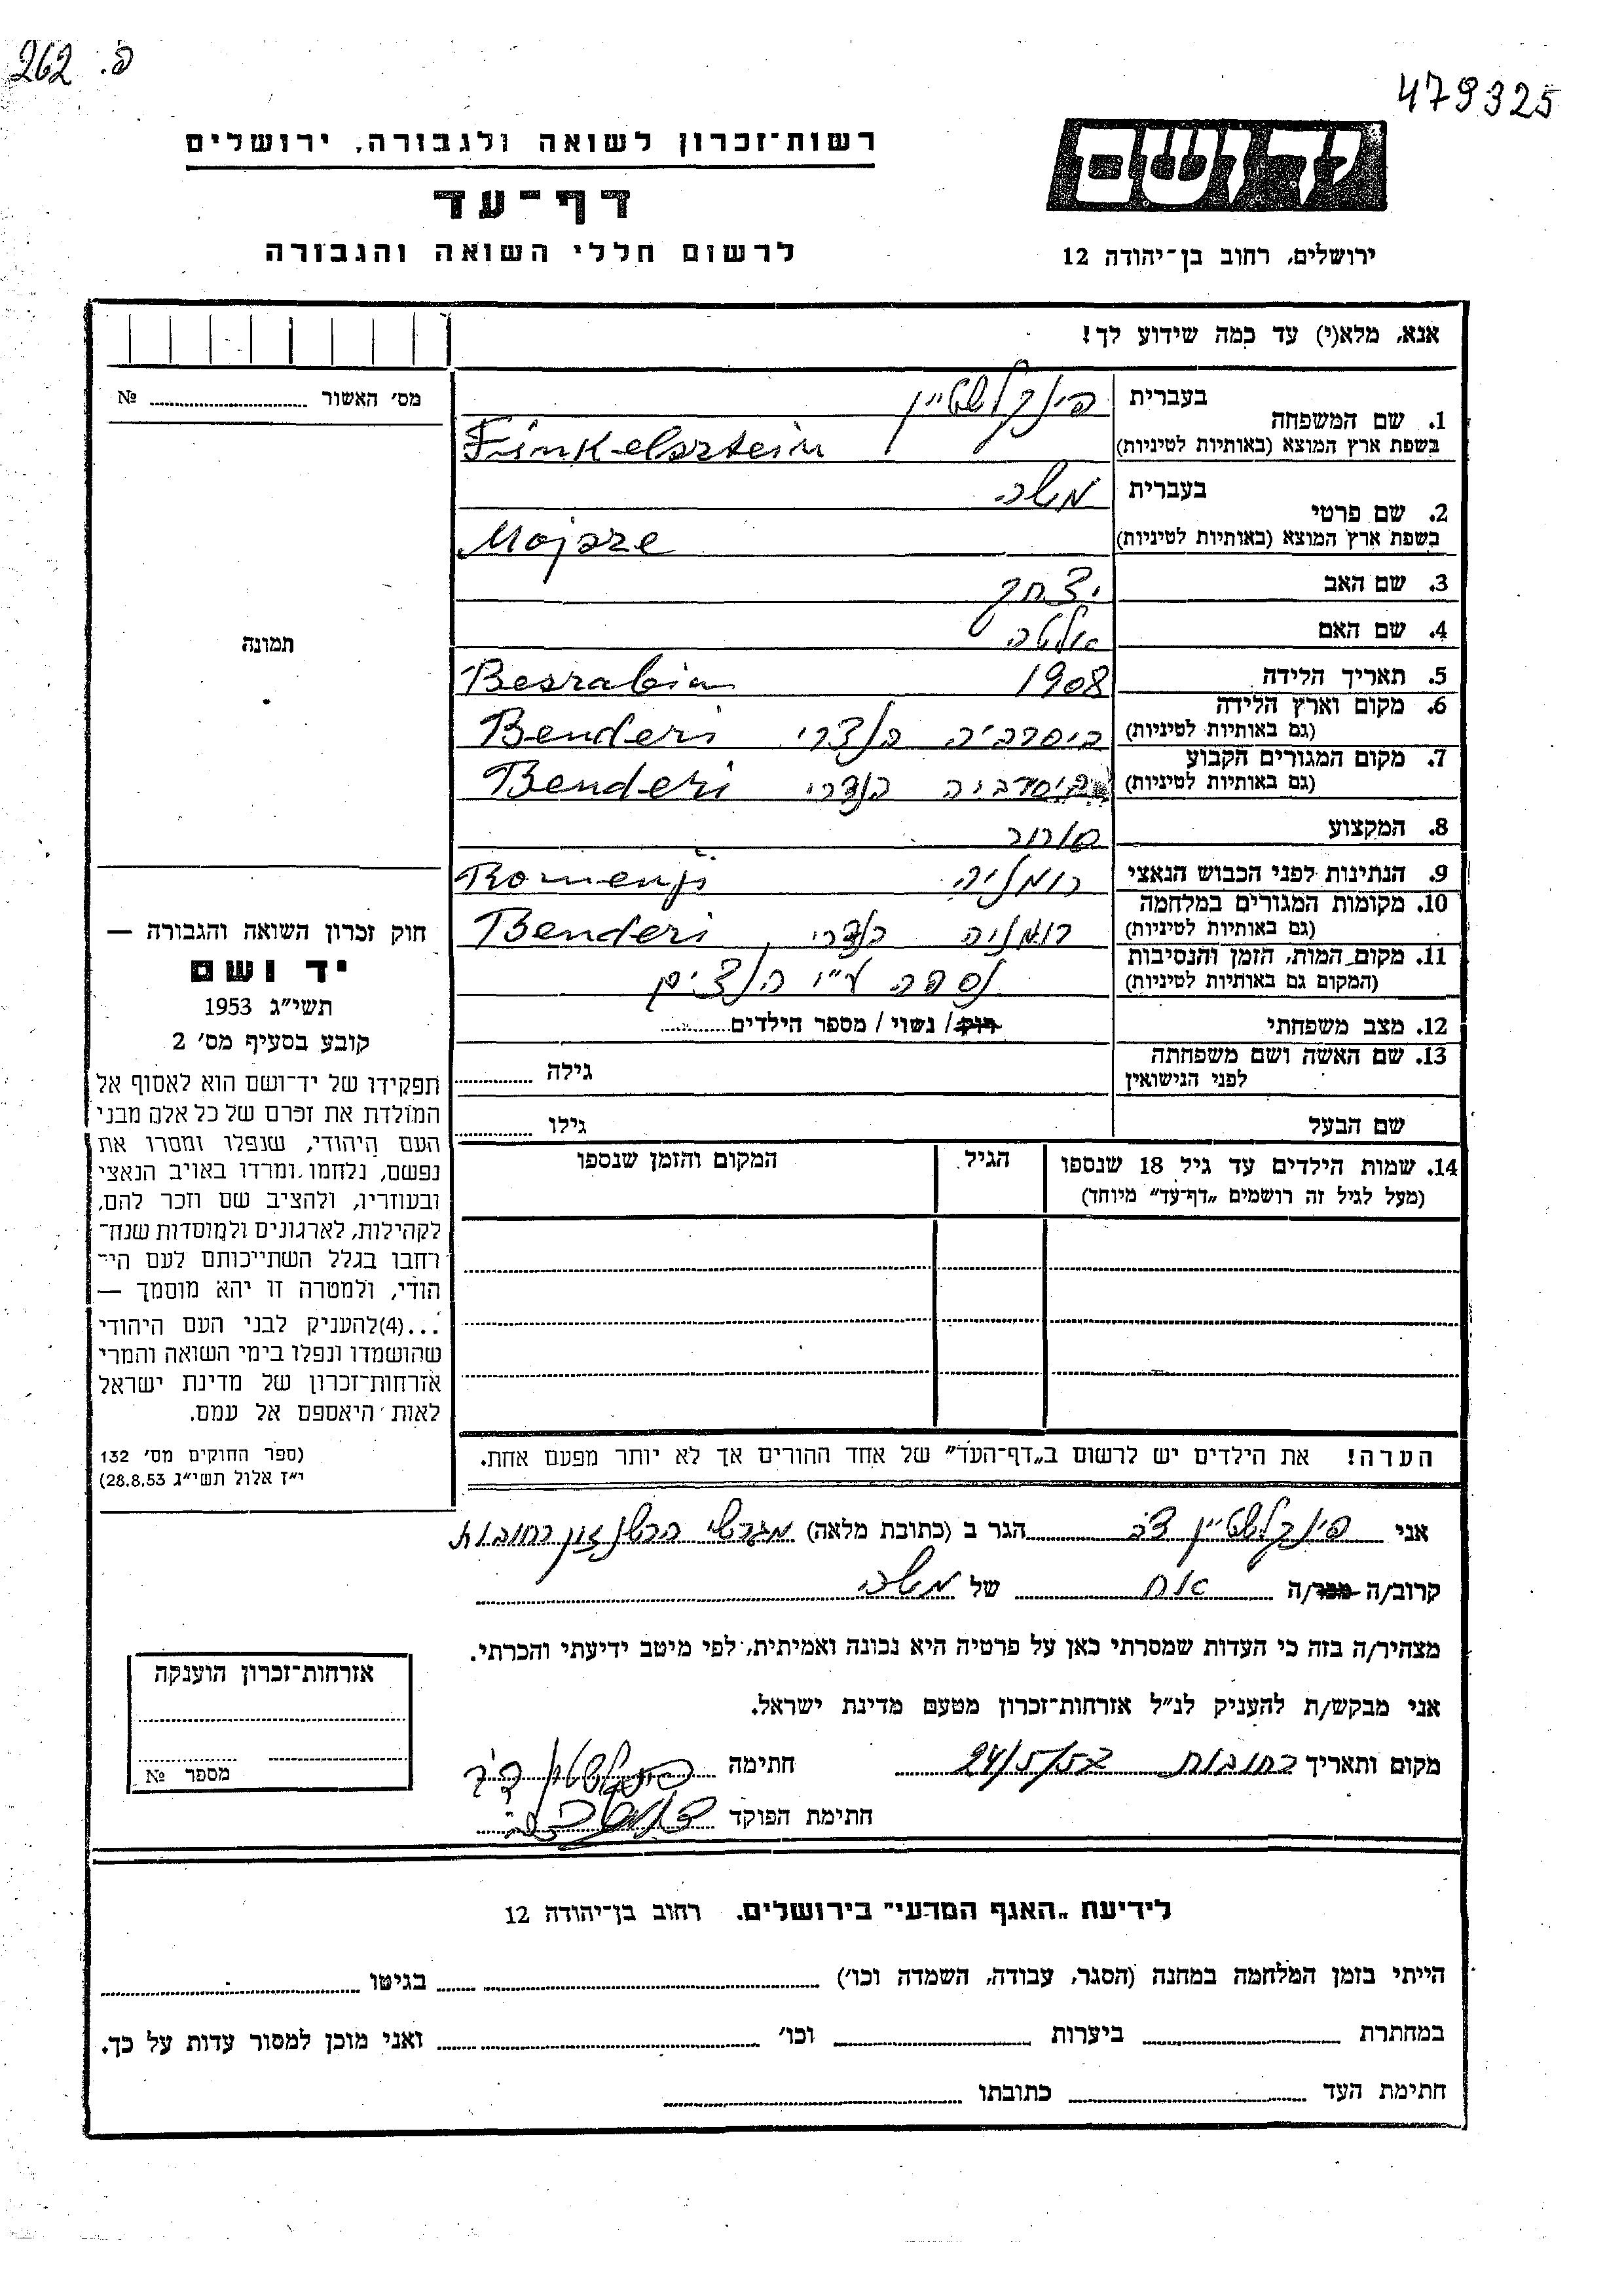 262 .פ
479325
רשות־זכרון לשואה ולגבורה, ירושלים
דף־עד
לרשום חללי השואה והגבורה
יד ושם
ירושלים, רחוב בן־יהודה 12
אנא, מלא(י) עד כמה שידוע לך!
מס׳ האשור № 
תמונה
1. שם המשפחה
בעברית פינקלשטיין
בשפת ארץ המוצא (באותיות לטיניות) Finkelsztein
2. שם פרטי
בעברית משה
בשפת ארץ המוצא (באותיות לטיניות) Mojsze
3. שם האב יצחק
4. שם האם
5. תאריך הלידה 1908 Besrabia
6. מקום וארץ הלידה
(גם באותיות לטיניות) ביסרביה בנדרי Benderi
7. מקום המגורים הקבוע
(גם באותיות לטיניות) ביסרביה בנדרי Benderi
8. המקצוע סוחר
9. הנתינות לפני הכבוש הנאצי רומניה
10. מקומות המגורים במלחמה
(גם באותיות לטיניות) רומניה בנדרי, Benderi
11. מקום המות, הזמן והנסיבות
(המקום גם באותיות לטיניות) נספה ע״י הנצים
12. מצב משפחתי רוק/ נשוי/ מספר הילדים
13. שם האשה ושם משפחתה
לפני הנישואין גילה
שם הבעל גילו
14. שמות הילדים עד גיל 18 שנספו הגיל המקום והזמן שנספו
(מעל לגיל זה רושמים „דף־עד״ מיוחד)
הערה! את הילדים יש לרשום ב„דף־העד״ של אחד ההורים אך לא יותר מפעם אחת.
חוק זכרון השואה והגבורה —
יד ושם
תשי״ג 1953
קובע בסעיף מס׳ 2
תפקידו של יד־ושם הוא לאסוף אל
המולדת את זכרם של כל אלה מבני
העם היהודי, שנפלו ומסרו את
נפשם, נלחמו ומרדו באויב הנאצי
ובעוזריו, ולהציב שם וזכר להם,
לקהילות, לארגונים ולמוסדות שנח־
רחבו בגלל השתייכותם לעם הי־
הודי, ולמטרה זו יהא מוסמך —
...(4) להעניק לבני העם היהודי
שהושמדו ונפלו בימי השואה והמרי
אזרחות־זכרון של מדינת ישראל
לאות היאספם אל עמם.
(ספר החוקים מס׳ 132
י״ז אלול תשי״ג 28.8.53)
אני פינקלשטיין הגר ב (כתובת מלאה) רחובות
קרוב/ה מכר/ה אח של משה
מצהיר/ה בזה כי העדות שמסרתי כאן על פרטיה היא נכונה ואמיתית, לפי מיטב ידיעתי והכרתי.
אני מבקש/ת להעניק לנ״ל אזרחות־זכרון מטעם מדינת ישראל.
מקום ותאריך רחובות חתימה
חתימת הפוקד
אזרחות־זכרון הוענקה
מספר №
לידיעת „האגף המדעי״ בירושלים. רחוב בן־יהודה 12
הייתי בזמן המלחמה במחנה (הסגר, עבודה, השמדה וכו׳) בגיטו
במחתרת ביערות וכו׳ ואני מוכן למסור עדות על כך.
חתימת העד כתובתו